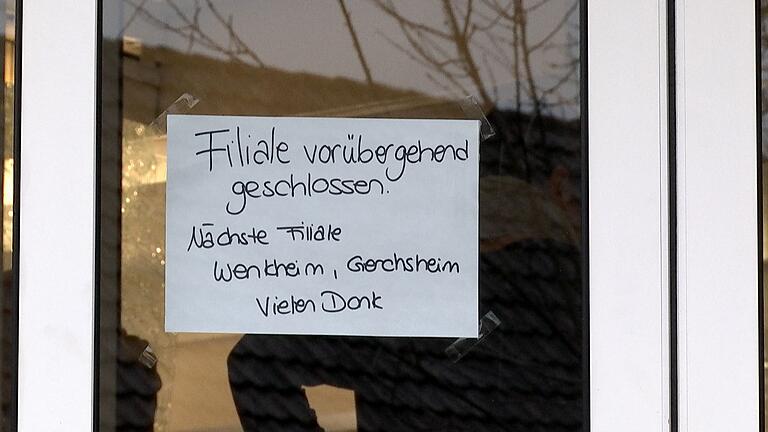 Filiale vorübergehend
geschlossen.
Nächste Filiale
Wenkheim, Gerchsheim
Vielen Dank